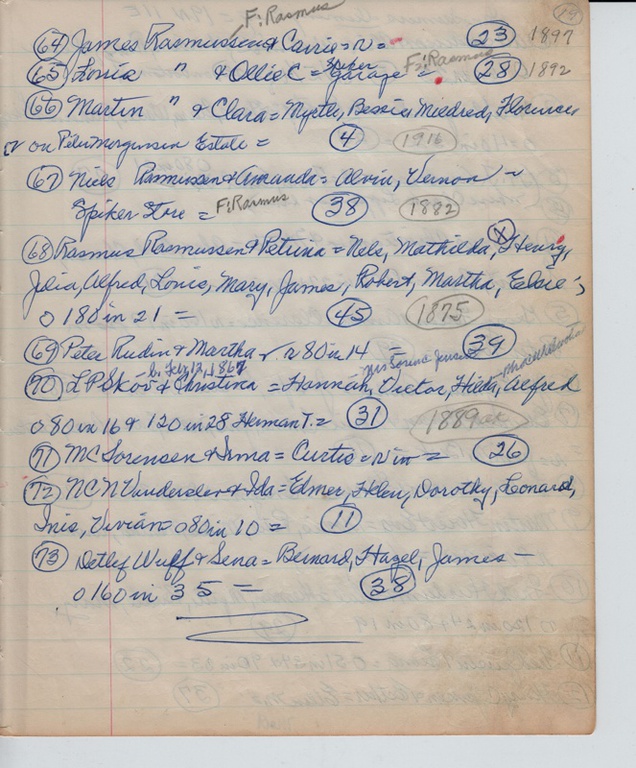 F: Rasmus
(64) James Rasmussen & Carrie = n = (23) 1897
(65) Louis " & Ollie C = Spiker Garage = F: Rasmus (28) 1892
(66) Martin " & Clara = Myrtle, Bessie, Mildred, Florence
on Peter Morgensen Estate = (4) (1916)
(67) Niels Rasmussen & Amanda = Alvin, Vernon ~
Spiker Store = F: Rasmus (38) (1882)
(68) Rasmus Rasmussen & Petrina = Nels, Mathilda, (X) Henry,
Julia, Alfred, Louis, Mary, James, Robert, Martha, Elsie =,
O 180 in 21 = (45) (1875)
(69) Peter Rudin & Martha r n 80 in 14 = (39)
b. Feb, 12, 1867 Mrs Soring Jensen
(70) L P Skov & Christina = Hannah, Victor, Hilda, Alfred
O 80 in 16 & 120 in 28 Herman T. = (31) (1889)
(71) MC Sorensen & Anna = Curtis = n in = (26)
(72) NCN Vandersler & Ida = Elmer, Helen, Dorothy, Leonard,
Inis, Vivian O 80 in 10 = (11)
(73) Detlef Wulff & Sena = Bernard, Hazel, James —
O 160 in 35 = (38)